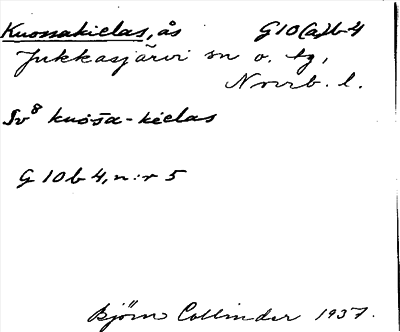 Kuossakielas, ås G10(a)b4
Jukkasjärvi sn o. tg,
Norrb. l.
Sv⁸ kuośa-kielas
G 10 b 4, n:r 5
Björn Collinder 1937.